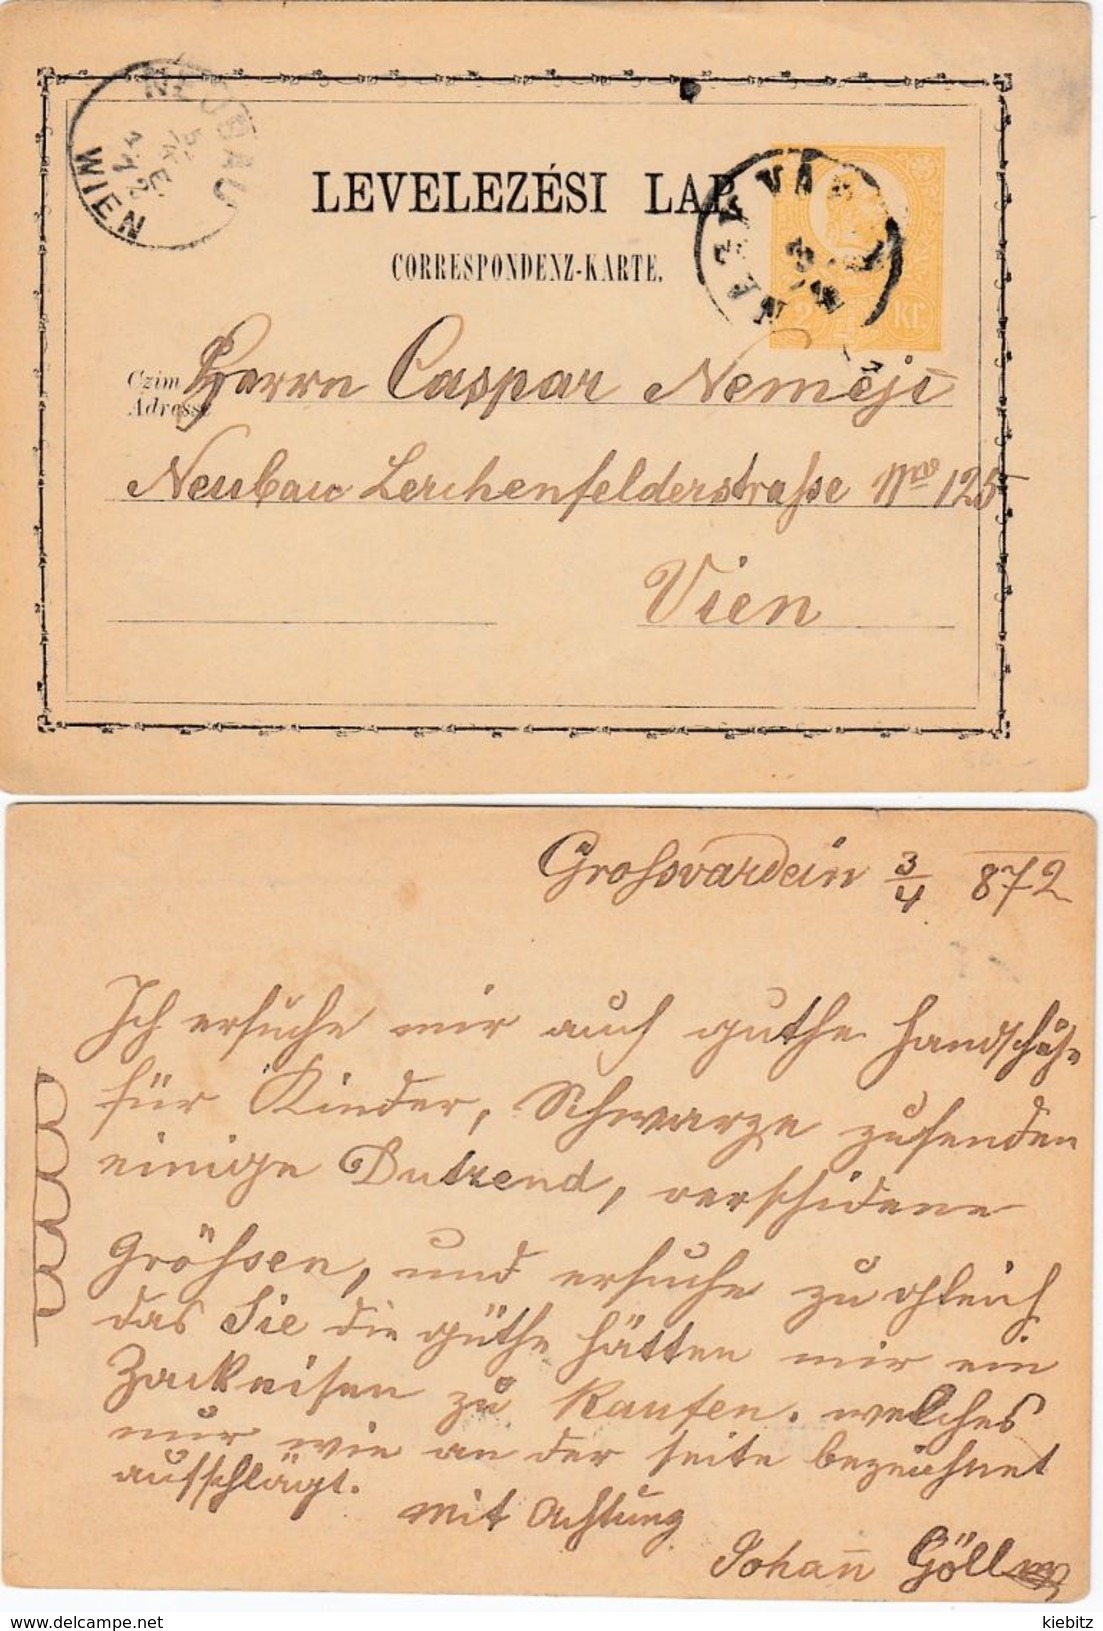 NEUBAU
WIEN
LEVELEZÉSI LAP.
CORRESPONDENZ-KARTE.
NAGY VÁRAD
2 Kr.
Czim
Adresse
Herrn Caspar Nemeji
Neubau Lerchenfelderstraße Nro 125
Vien
Großvardein 3/4 872
Ich ersuche mir auch guthe Handschuhe
für Kinder, Schwarze zusenden
einige Dutzend, verschidene
Größsen, und ersuche zu gleich
das Sie die güthe hätten mir ein
Zackeisen zu kaufen. welches
nur wie an der seite bezeichnet
aufschlägt.
Mit Achtung
Johann Göllner
www.delcampe.net
kiebitz